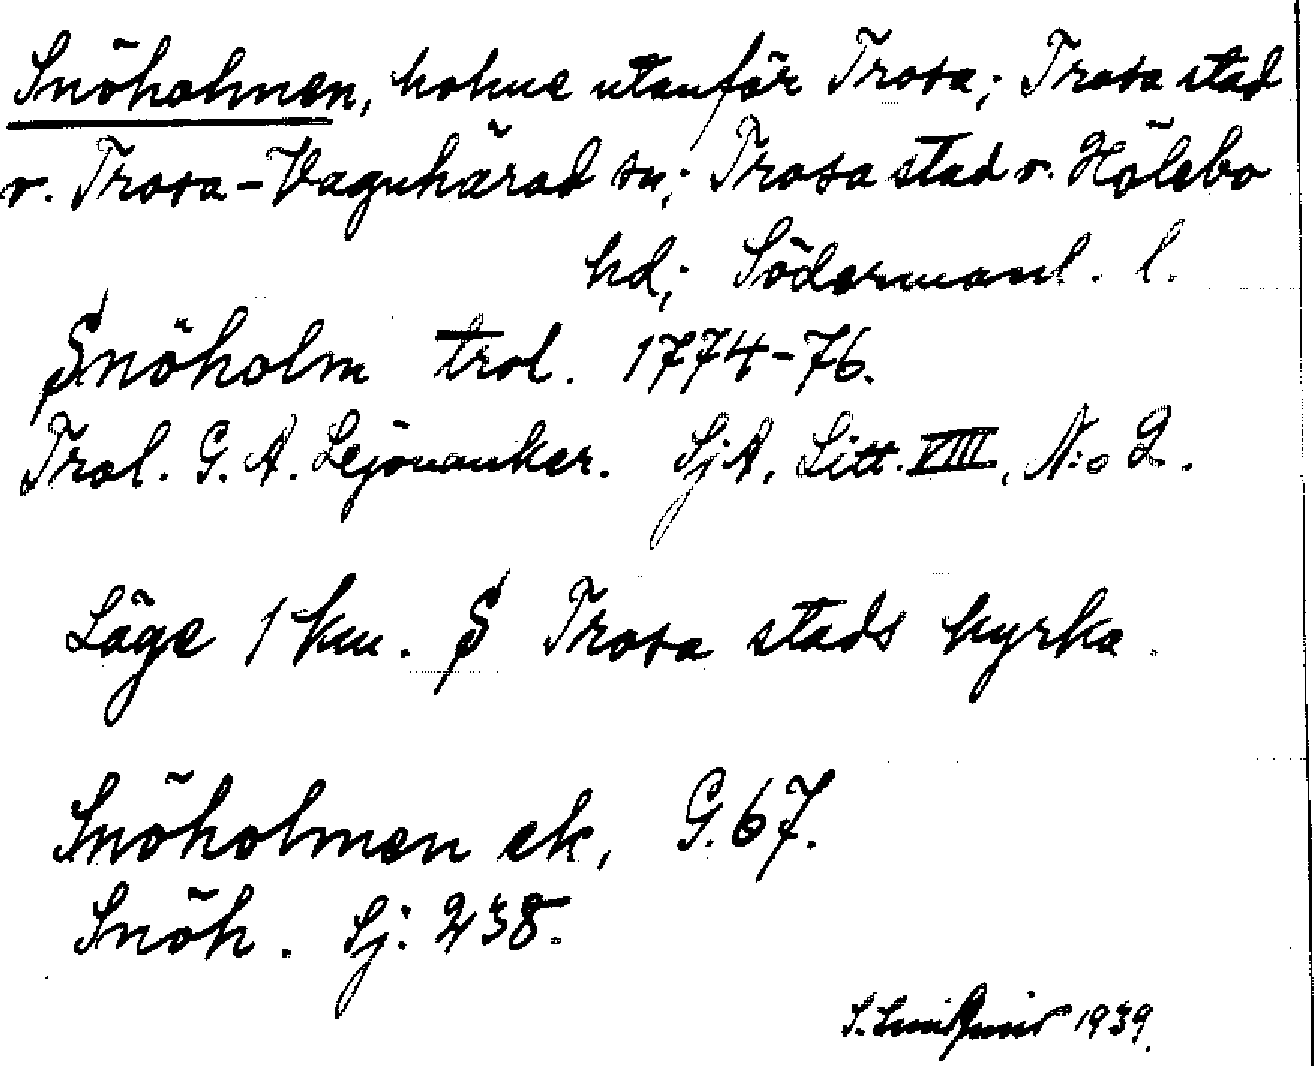 Snöholmen, holme utanför Trosa; Trosa stad
v. Trosa-Vagnhärad sn; Trosa stad v. Hölebo
hd; Södermanl. l.
Snöholm trol. 1774-76.
Trol. G. A. Lejonanker. SjA, Litt. VIII, N:o 2.
Läge 1 km. S Trosa stads kyrka.
Snöholmen ek, G. 67.
Snöh. Sj: 238.
S. Lindqvist 1939.